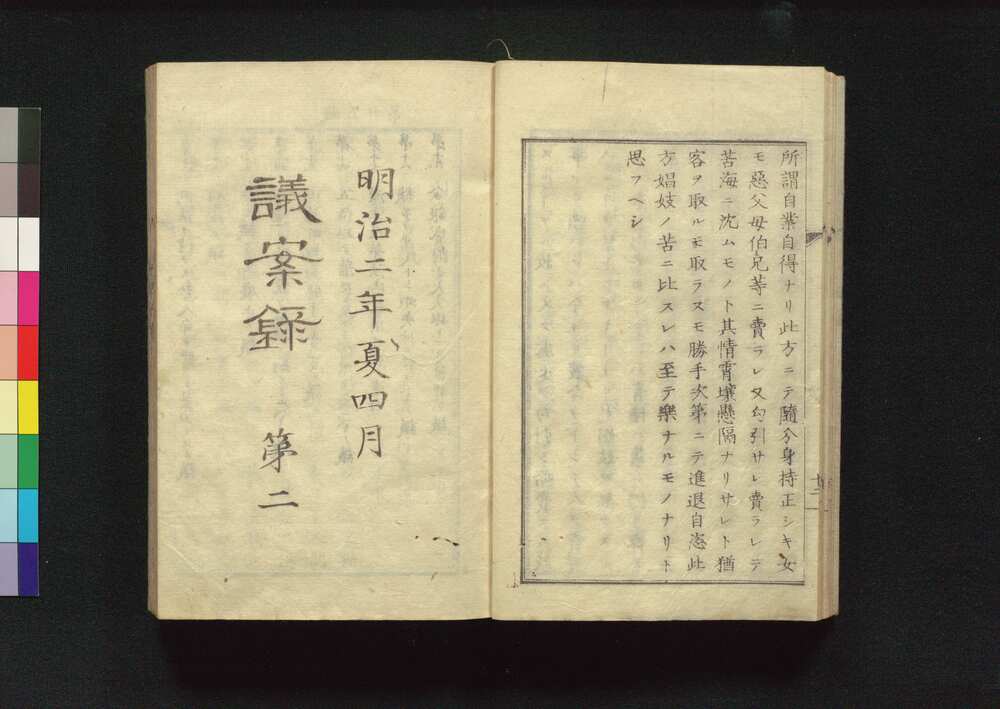 所謂自業自得ナリ此方ニテ隨分身持正シキ女
モ惡父母伯兄等ニ賣ラレ又勾引サレ賣ラレテ
苦海ニ沈ムモノト其情霄壤懸隔ナリサレト猶
客ヲ取ルモ取ラスモ勝手次第ニテ進退自恣此
方娼妓ノ苦ニ比スレハ至テ樂ナルモノナリト
思フヘシ
明治二年夏四月
議案録 第二